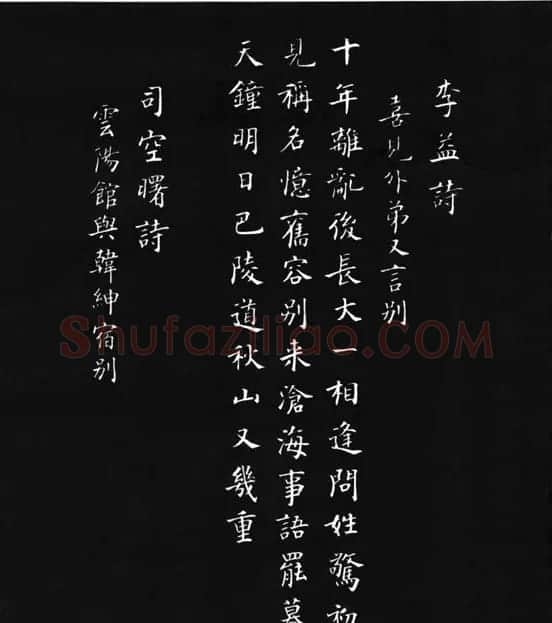 李益詩
喜見外弟又言别
十年離亂後長大一相逢問姓驚初
見稱名憶舊容别来滄海事語罷暮
天鐘明日巴陵道秋山又幾重
司空曙詩
雲陽館與韓紳宿别
Shufaziliao.COM